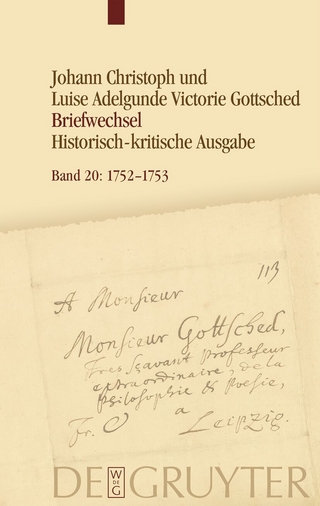 Johann Christoph und
Luise Adelgunde Victorie Gottsched
Briefwechsel
Historisch-kritische Ausgabe
Band 20: 1752–1753
113
A Monsieur
Monsieur Gottsched,
Tres Sçavant Professeur
extraordinaire de la
Philosophie & Poesie,
a
Fr. Leipzig.
DE GRUYTER
W
DE
G